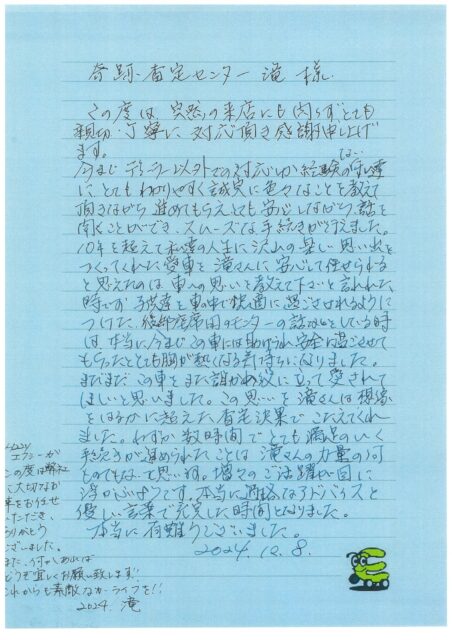 奇跡の査定センター 滝 様
この度は、突然の来店にも関らずとても
親切、丁寧に対応頂き感謝申し上げ
ます。
今までディーラー以外での対応しか経験のない
にとてもわかりやすく誠実に色々なことを教えて
頂きながら進めてもらえとても安心しながら話を
聞くことができ、スムーズな手続きが行えました。
10年を超えて私達の人生に沢山の楽しい思い出を
つくってくれた愛車を滝さんに安心して任せられる
と思えたのは車への思いを教えて下さいと言われた
時です。子供達を車の中で快適に過ごさせれるように
つけた、後部座席用モニターの話などをしている時
は、本当に今までこの車には助けられ安全に過ごさせて
もらったととても胸が熱くなる気持ちになりました。
まだまだこの車をまた誰かの役に立って愛されて
ほしいと思いました。この思いを滝さんは想像
をはるかに超えた査定決果でこたえてくれ
ました。わずか数時間でとても満足のいく
手続きが進められたことは滝さんの力量の何
ものでもないと思います。増々のご活躍が目に
浮かぶようです。本当に適格なアドバイスと
優しい言葉で充実した時間となりました。
本当に有難うございました。
2024.12.8.
エフシーが
この度は弊社
に大切なお
車をお任せ
いただき、
ありがとう
ございました。
また、何かあれば
どうぞ宜しくお願い致します!
これからも素敵なカーライフを!!
2024. 滝